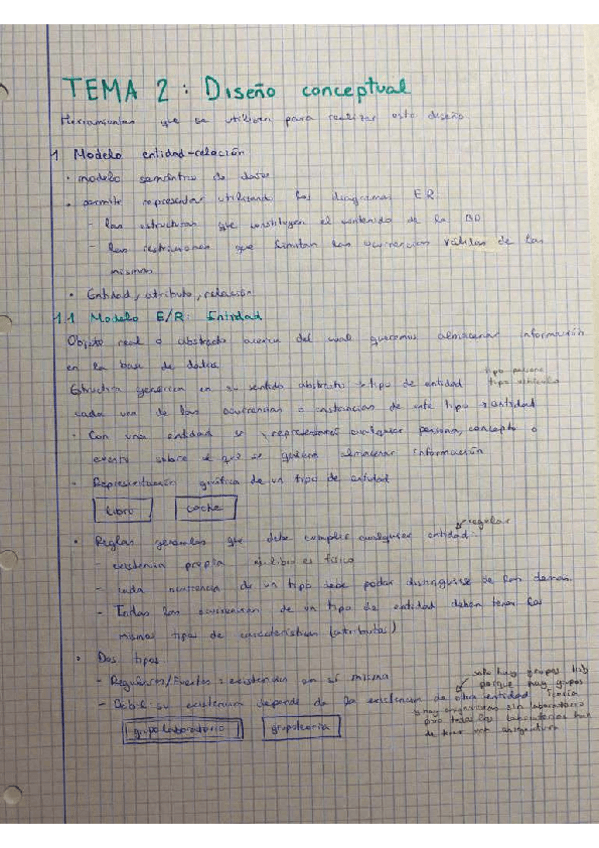 TEMA 2: Diseño conceptual
Herramientas que se utilizan para realizar este diseño
1 Modelo entidad-relación
• modelo semántico de datos
• permite representar utilizando los diagramas ER:
- las estructuras que constituyen el contenido de la BD
- las restricciones que limitan las ocurrencias válidas de las
mismas
• Entidad, atributo, relación
1.1 Modelo E/R: Entidad
Objeto real o abstracto acerca del cual queremos almacenar información
en la base de datos
tipo persona
Estructura genérica en su sentido abstracto → tipo de entidad
tipo
cada una de las ocurrencias o instancias de este tipo → entidad
• Con una entidad se representar cualquier persona, concepto o
evento sobre el que se almacenar información
• Representación gráfica de un tipo de entidad
libro coche
regular
• Reglas generales que debe cumplir cualquier entidad:
- existencia propia libro es físico
- cada ocurrencia de un tipo debe poder distinguirse de las demás
- Todas las ocurrencias de un tipo de entidad deben tener los
mismos tipos de características (atributos)
• Dos tipos
solo hay grupos lab
porque hay grupos
- Regulares/Fuertes: existencia en sí misma
teoría
- Débil: su existencia depende de la existencia de otra entidad
y hay asignaturas sin laboratorio
pero todos los laboratorios han
de tener una asignatura
grupo laboratorio grupo teoría